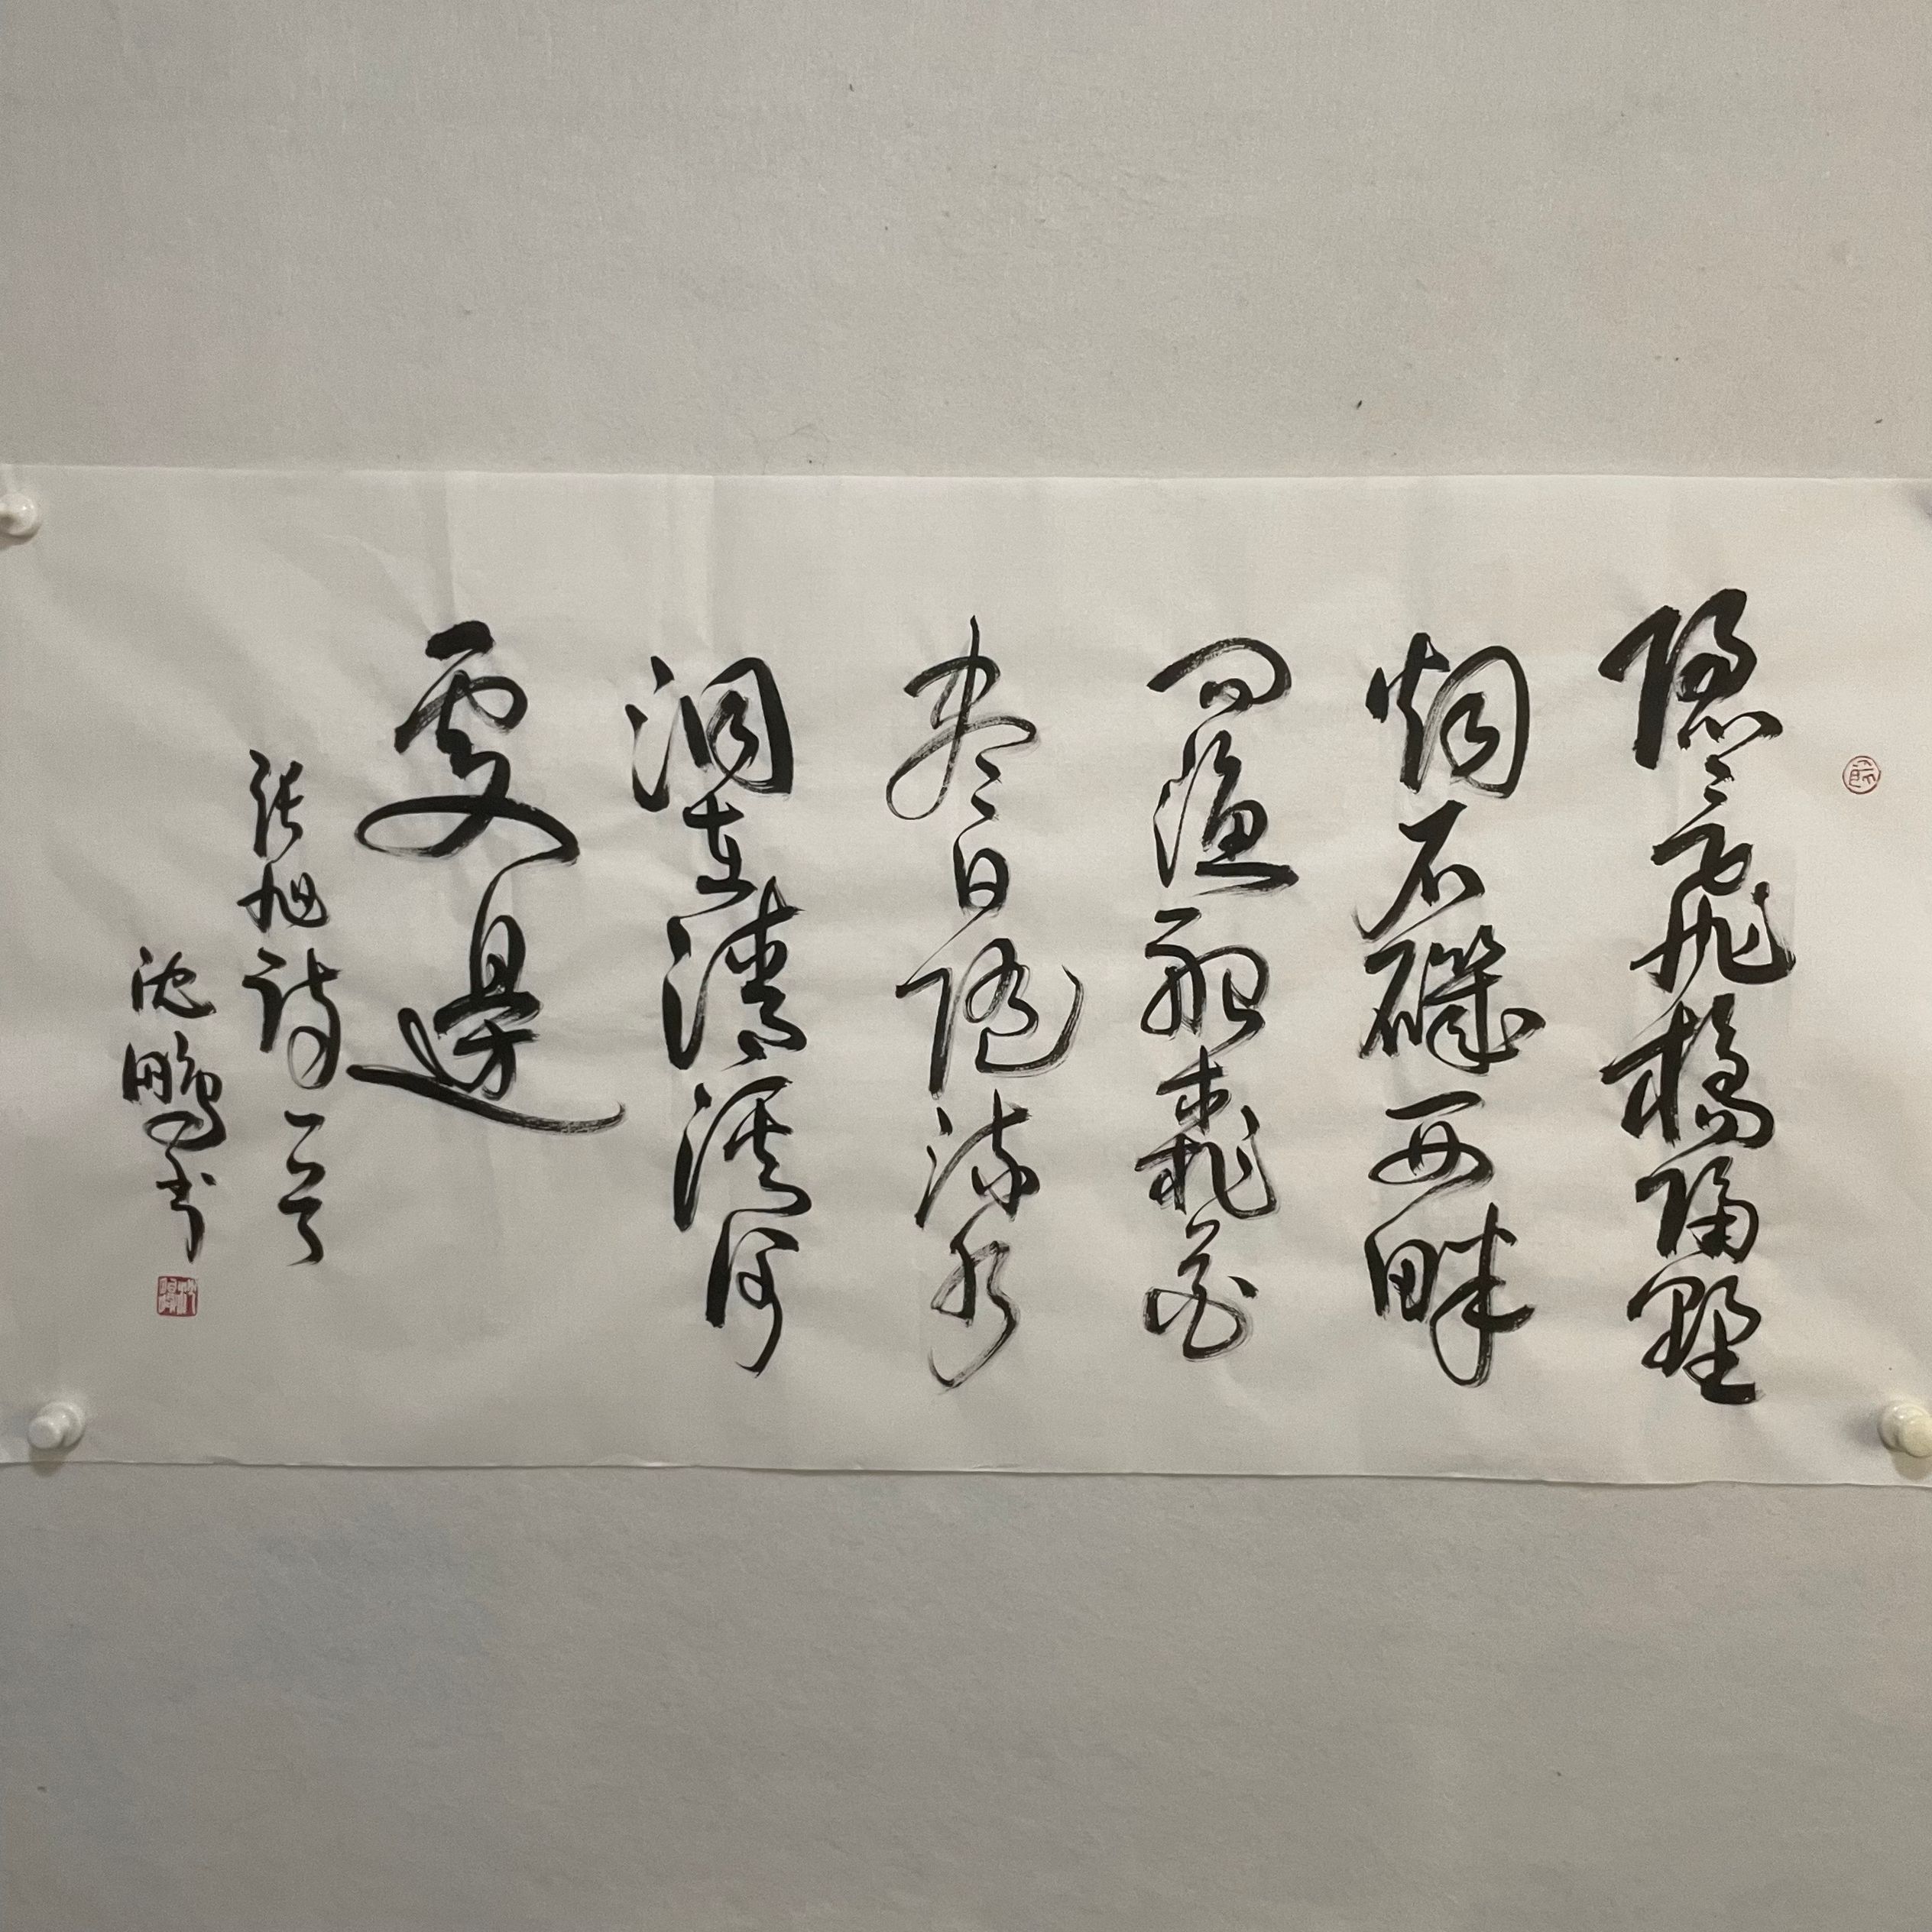 隱〻飛橋隔野
烟石磯西畔
問漁船桃花
盡日随流水
洞在清溪何
處邊
張旭詩一首
沈鵬书